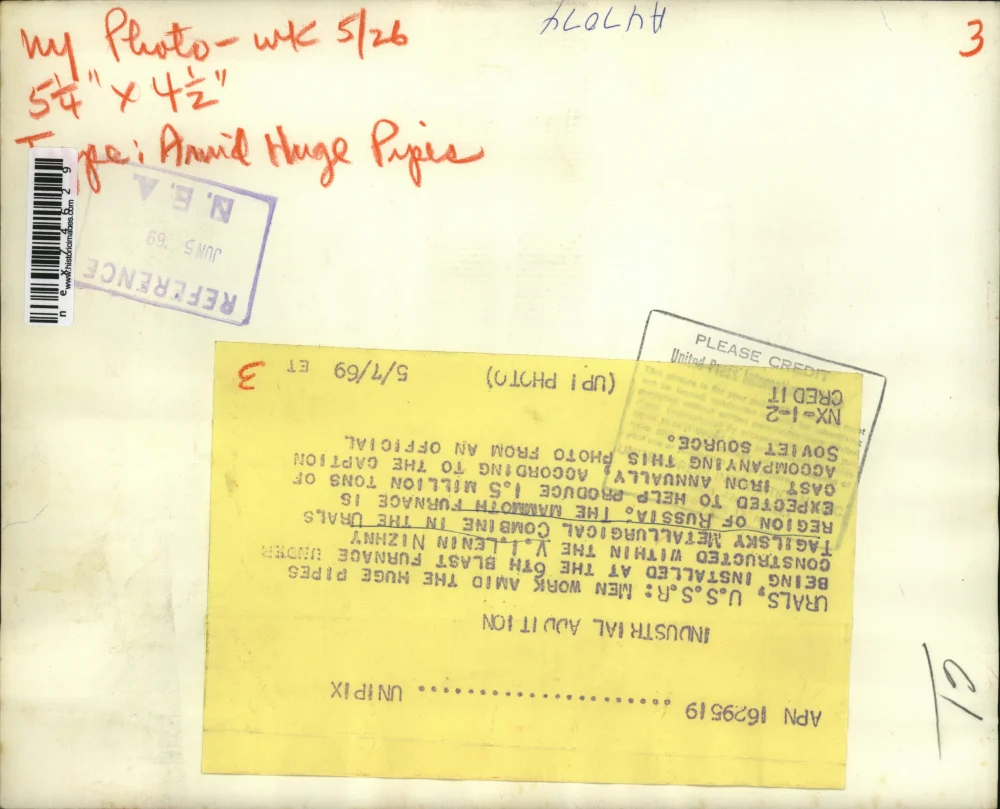 ny Photo - wk 5/26
5 1/4" x 4 1/2"
Type: Amid Huge Pipes
3
REFERENCE
JUN 5 '69
N.E.A.
www.historicimages.com
PLEASE CREDIT
United Press
APN 1629519 .................... UNIPIX
INDUSTRIAL ADDITION
URALS, U.S.S.R: MEN WORK AMID THE HUGE PIPES
BEING INSTALLED AT THE 6TH BLAST FURNACE UNDER
CONSTRUCTED WITHIN THE V.I.LENIN NIZHNY
TAGILSKY METALLURGICAL COMBINE IN THE URALS
REGION OF RUSSIA. THE MAMMOTH FURNACE IS
EXPECTED TO HELP PRODUCE 1.5 MILLION TONS OF
CAST IRON ANNUALLY, ACCORDING TO THE CAPTION
ACCOMPANYING THIS PHOTO FROM AN OFFICIAL
SOVIET SOURCE.
NX-1-2
CREDIT (UPI PHOTO) 5/7/69 ET
3